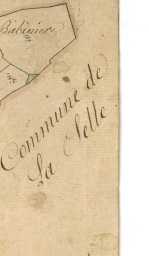 Commune de
La Selle